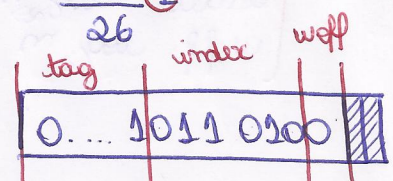 26
tag index woff
0.... 1011 0100